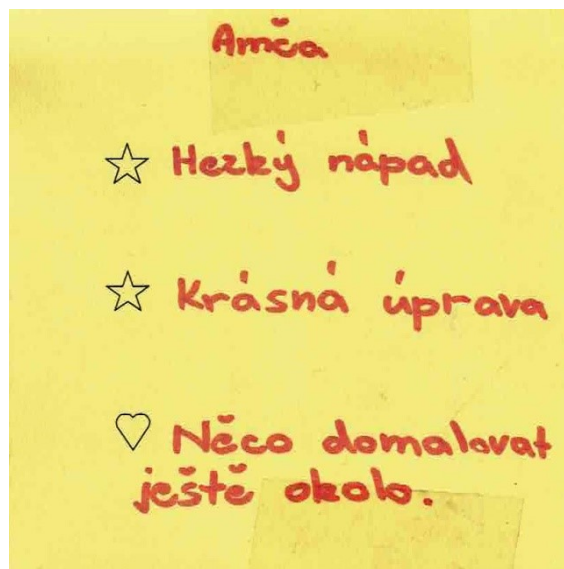 Amča
☆ Hezký nápad
☆ Krásná úprava
♡ Něco domalovat
ještě okolo.